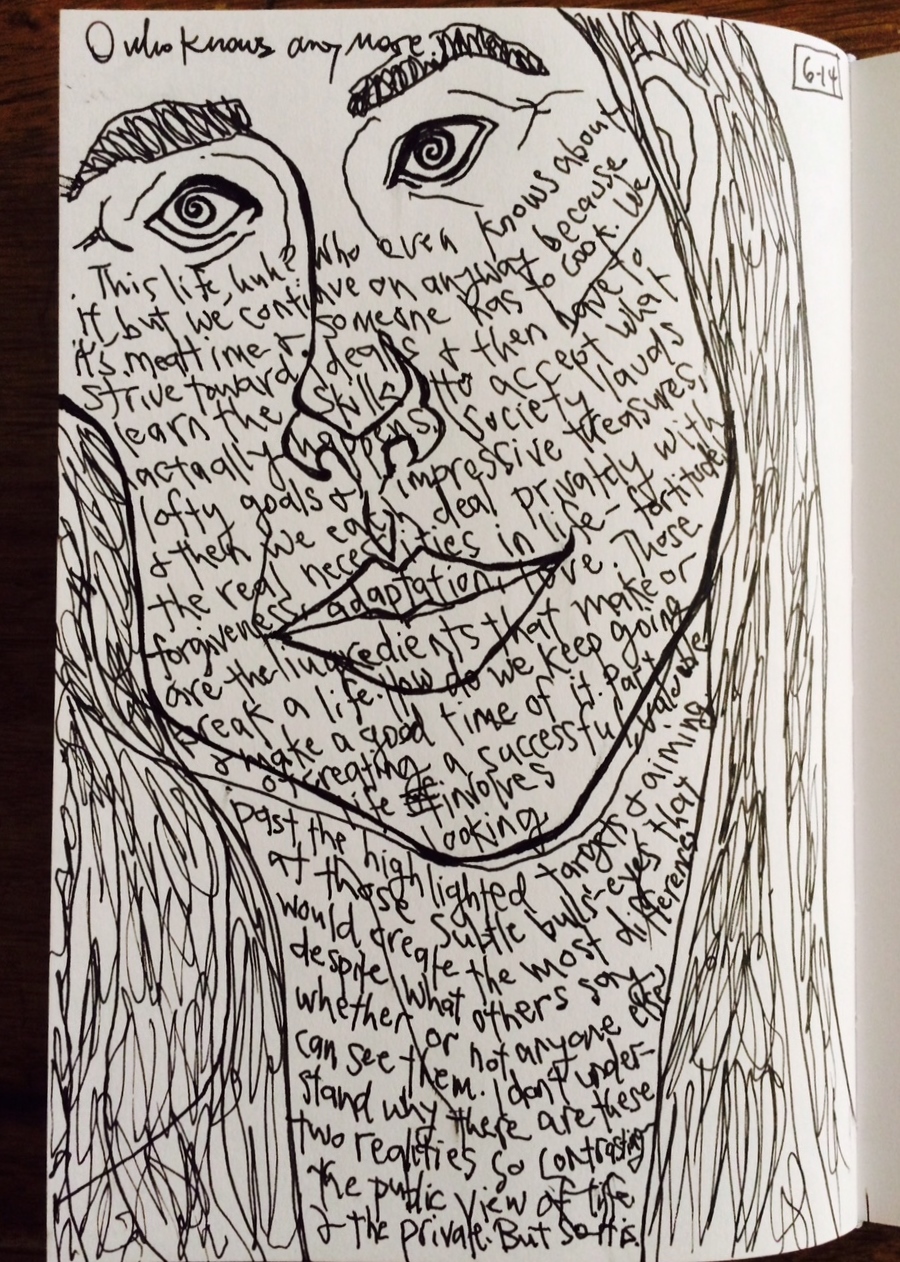 O who knows any more.
6-14
This life, huh? Who even knows about
it, but we continue on anyway because
it's mealtime & someone has to cook. We
strive toward ideals & then have to
learn the skills to accept what
actually happens. Society lauds
lofty goals & impressive treasures,
& then we each deal privatly with
the real necessities in life—fortitude,
forgiveness, adaptation, love. Those
are the ingredients that make or
break a life. How do we keep going
& make a good time of it. Part
of creating a successful, valuable
life involves
looking
past the highlighted targets & aiming
at those subtle bulls-eyes that
would create the most difference
despite what others say,
whether or not anyone else
can see them. I don't under-
stand why there are these
two realities so contrasting
the public view of life
& the private. But so it is.